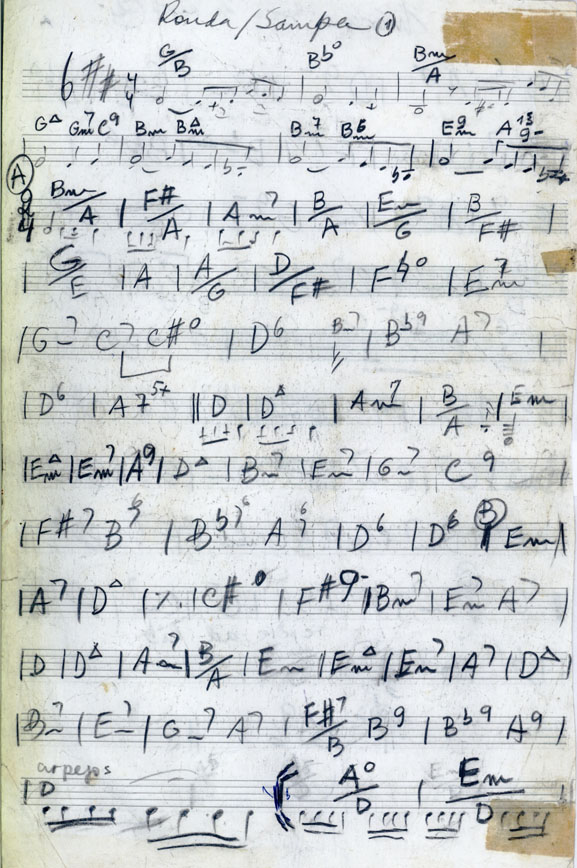 Ronda/Sampa ①
6 ## 4/4 G/B B♭° Bm/A
G△ Gm7 C9 Bm Bm△ Bm7 Bm6 Em9 A 13 9-
A
2/4 Bm/A | F#/A | Am7 | B/A | Em/G | B/F#
G/E | A | A/G | D/F# | F♮° | Em7
| G-7 C7 C#° | D6 B-7 | B♭9 A7
| D6 | A7 5+ || D | D△ | Am7 | B/A | Em
| Em△ | Em7 | A9 | D△ | B-7 | E-7 | G-7 C9
| F#7 B | B♭7 A7 | D6 | D6 B Em |
| A7 | D△ | ٪ | C#° | F#9- | Bm7 | Em7 A7
D | D△ | Am7 | B/A | Em | Em△ | Em7 | A7 | D△
B-7 | E-7 | G-7 A7 | F#7/B B9 | B♭9 A9 |
arpejos
| D A°/D | Em/D